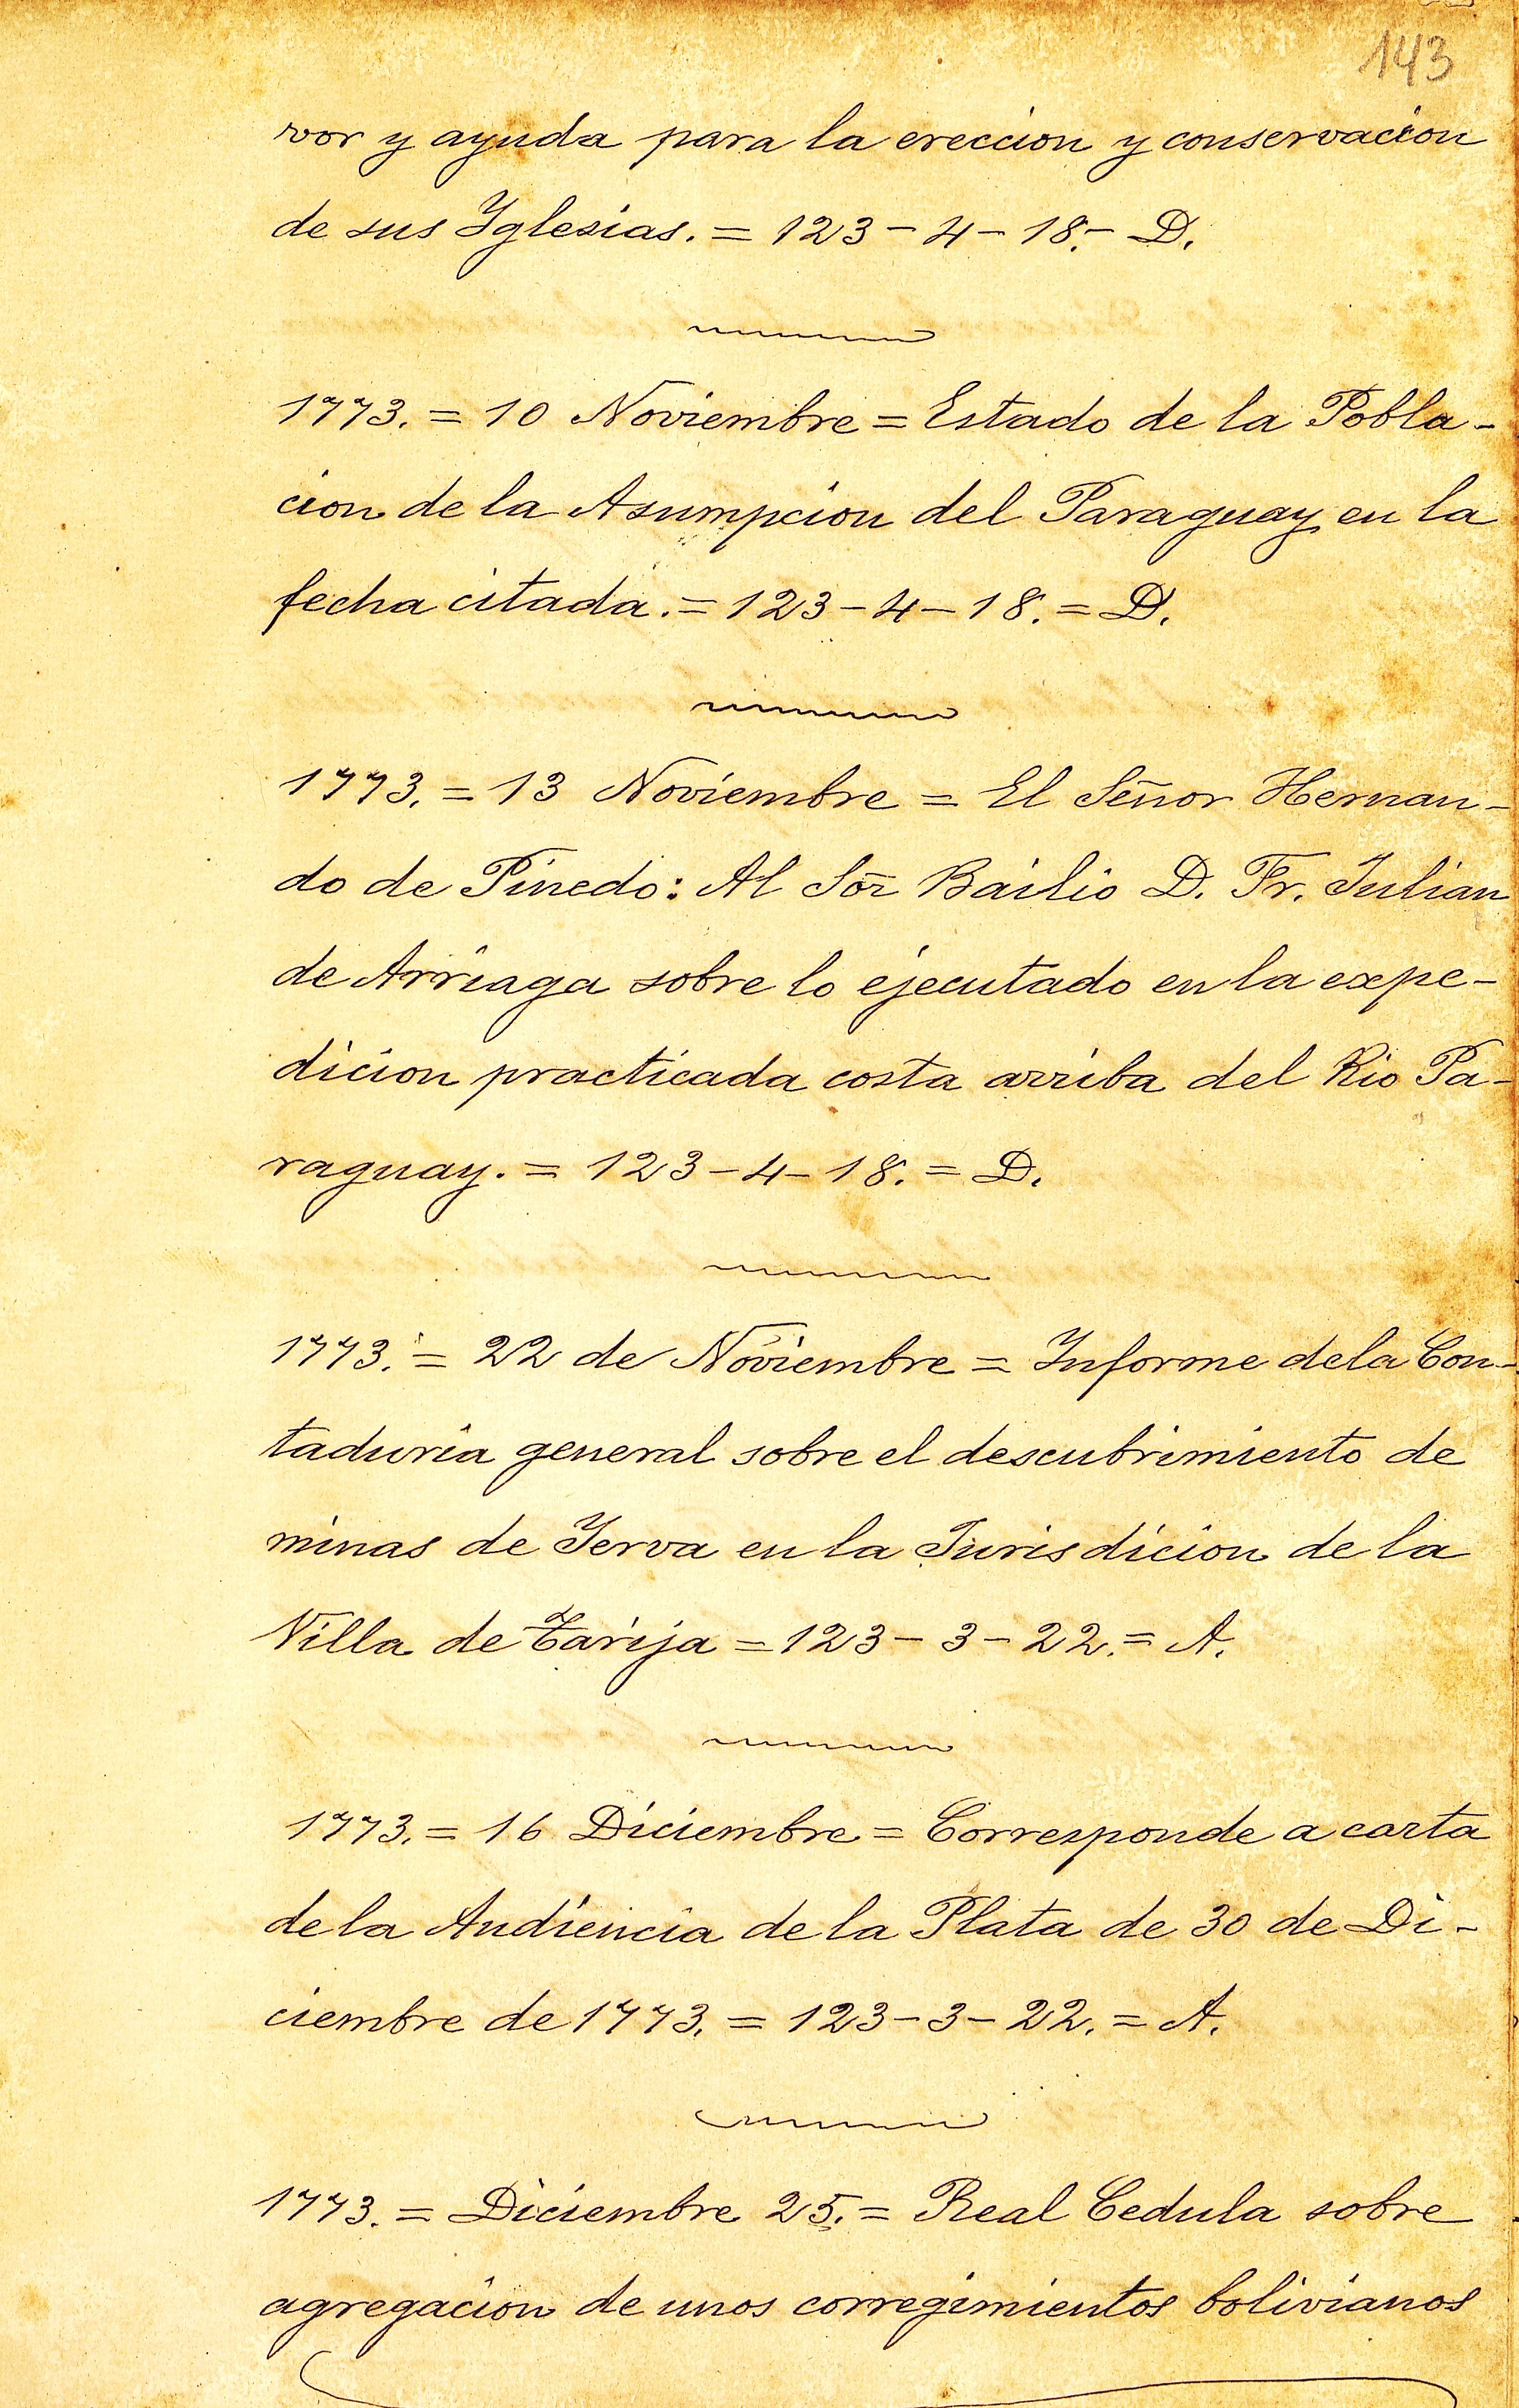 143
vor y ayuda para la ereccion y conservacion
de sus Yglesias. = 123 - 4 - 18. - D.
1773. = 10 Noviembre = Estado de la Pobla-
cion de la Asumpcion del Paraguay en la
fecha citada. = 123 - 4 - 18. = D.
1773. = 13 Noviembre = El Señor Hernan-
do de Pinedo: Al Sor̄ Bailio D. Fr. Julian
de Arriaga sobre lo ejecutado en la expe-
dicion practicada costa arriba del Rio Pa-
raguay. = 123 - 4 - 18. = D.
1773. = 22 de Noviembre = Informe de la Con-
taduria general sobre el descubrimiento de
minas de Yerva en la Jurisdicion de la
Villa de Tarija = 123 - 3 - 22. = A.
1773. = 16 Diciembre = Corresponde a carta
de la Audiencia de la Plata de 30 de Di-
ciembre de 1773. = 123 - 3 - 22. = A.
1773. = Diciembre 25. = Real Cedula sobre
agregacion de unos corregimientos bolivianos